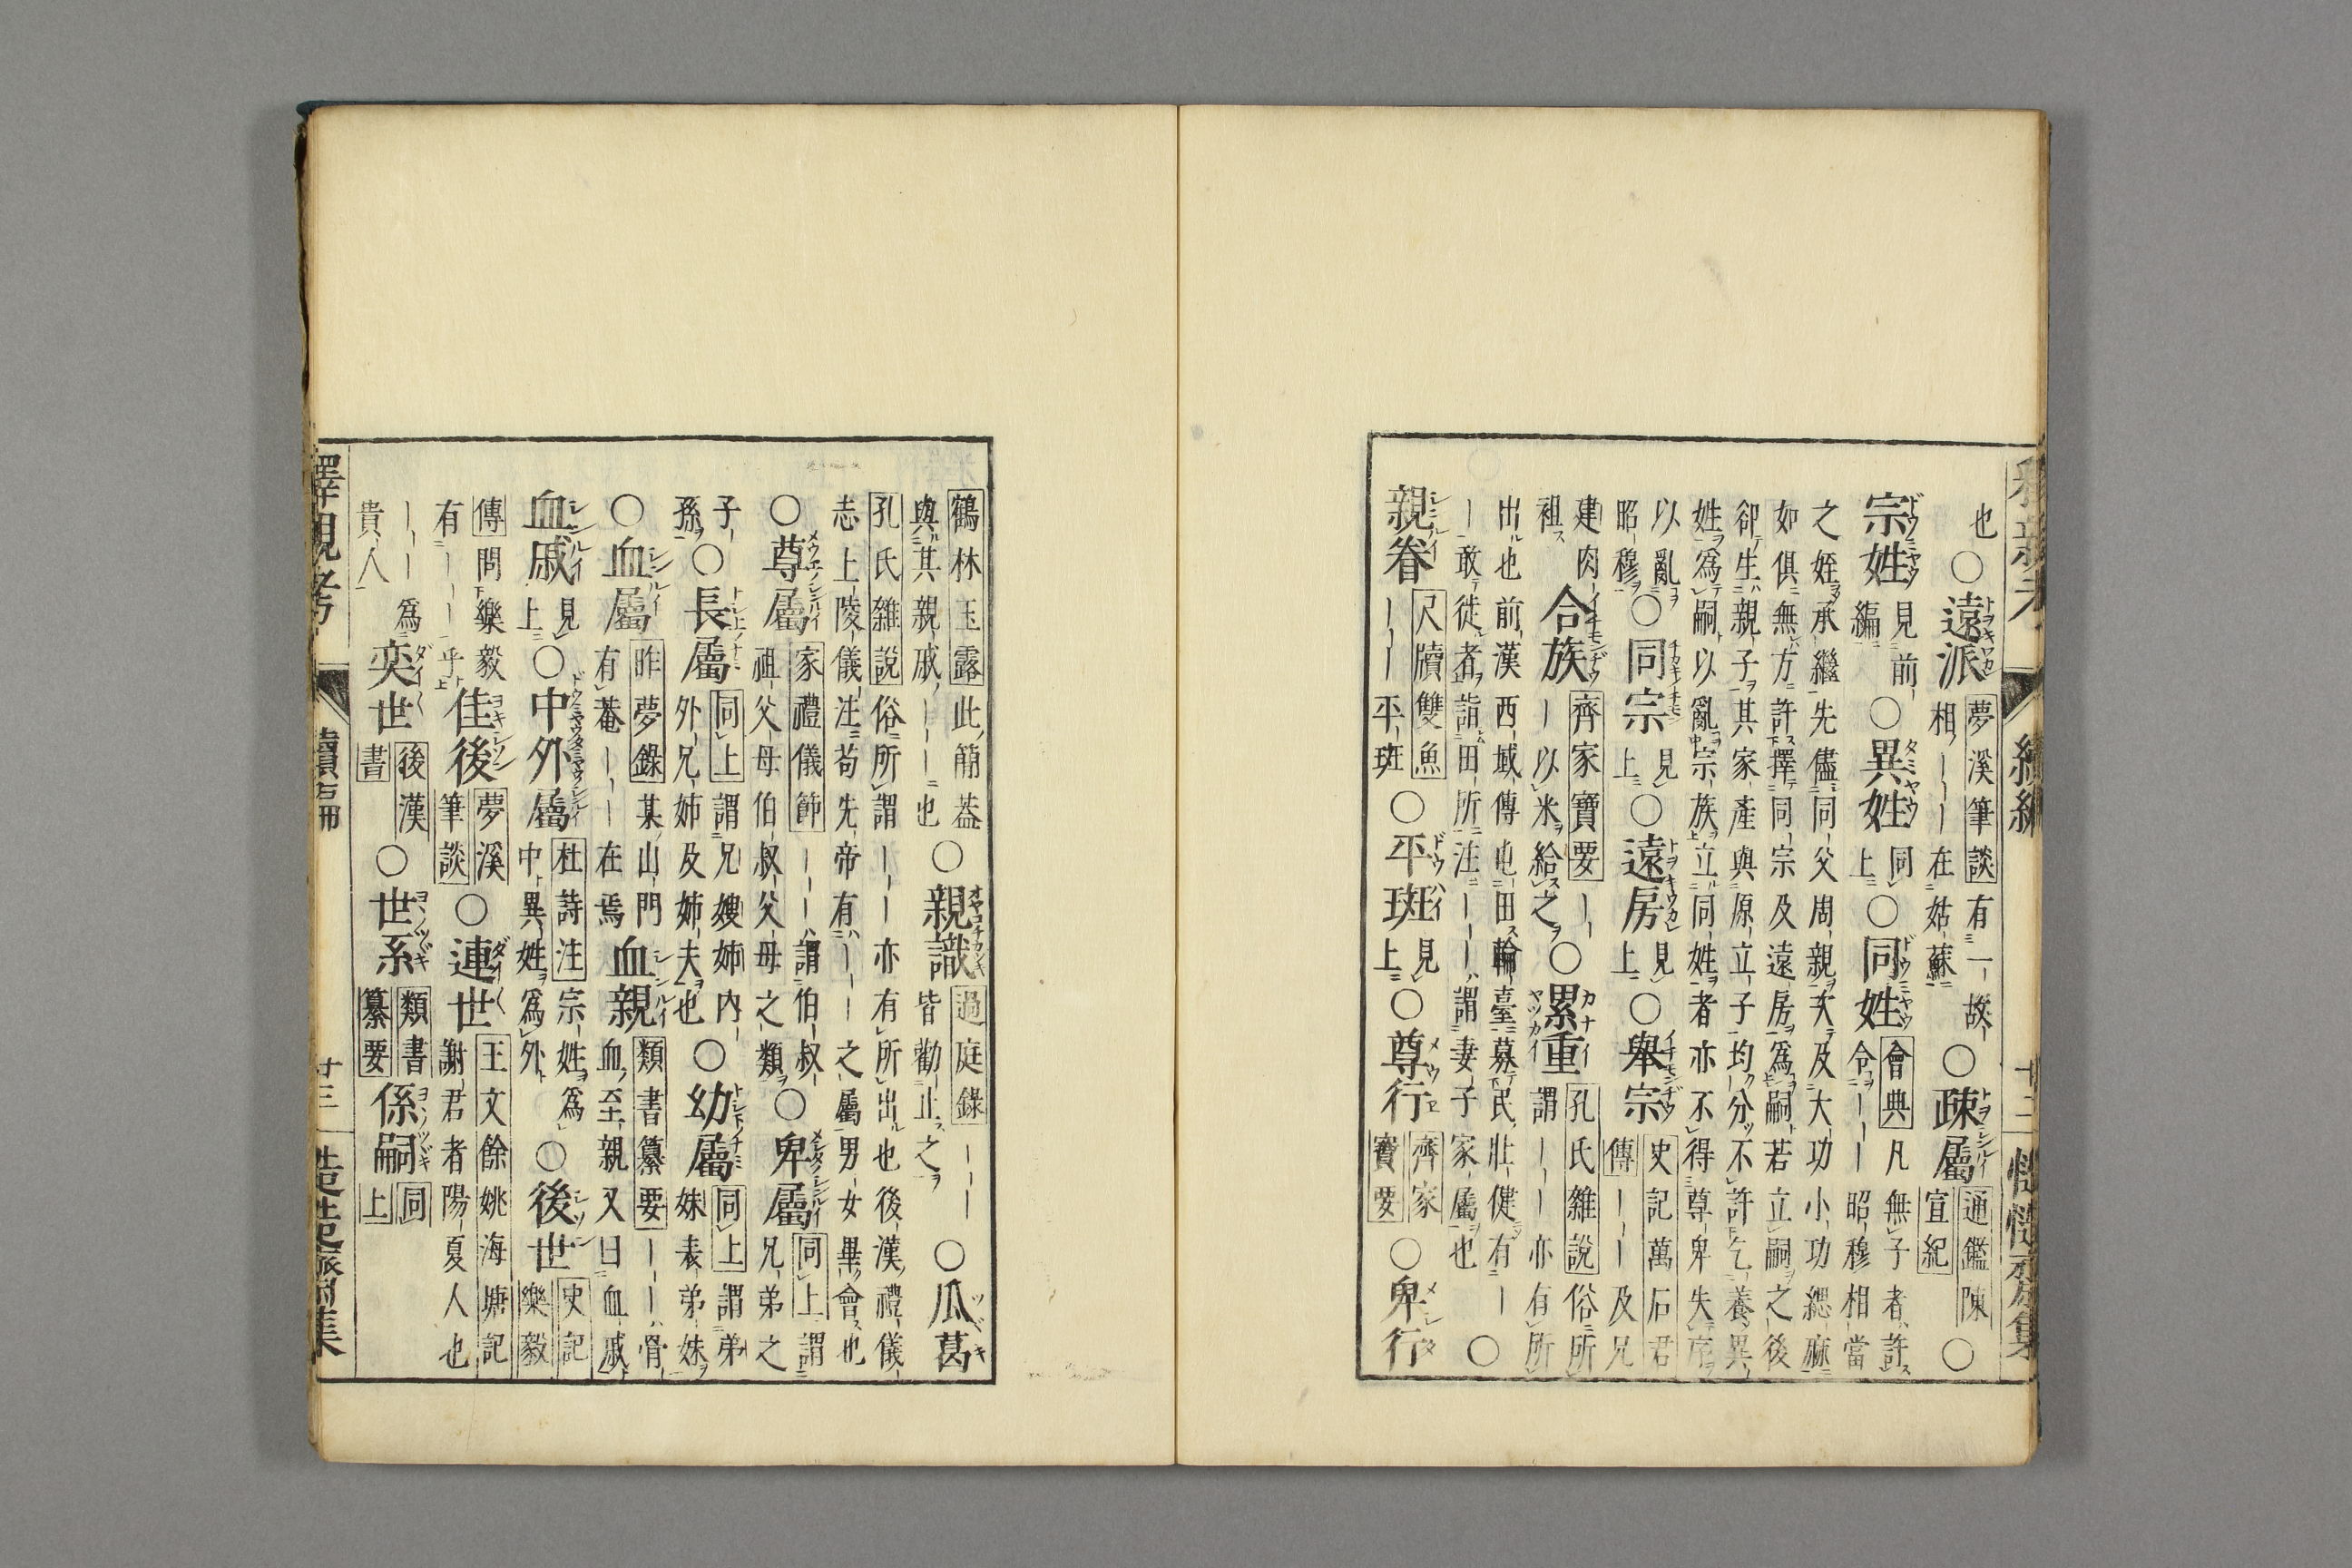 也○遠派夢溪筆談有一故相｜｜｜在姑蘇○疎屬通鑑陳宣紀○
宗姓見前編○異姓同上○同姓會典凡無子者許令｜｜昭穆相當
之姪承繼先儘同父周親次及大功小功緦麻
如俱無方許擇同宗及遠房爲嗣若立嗣之後
却生親子其家產與原立子均分不許乞養異
姓爲嗣以亂宗族立同姓者亦不得尊卑失序
以亂昭穆○同宗見上○遠房見上○舉宗史記萬石君傳｜｜｜及兄
建肉袒合族齊家寶要｜｜｜以米給之○累重孔氏雜說俗所謂｜｜｜亦有所
出也前漢西域傳屯田輪臺募民壯健有｜
｜敢徒者詣田所注｜｜｜謂妻子家屬也○
親眷尺牘雙魚｜｜｜平班○平班見上○尊行齊家寶要○卑行
鶴林玉露此簡葢與其親戚｜｜｜也○親識過庭錄｜｜｜皆勸止之○瓜葛
孔氏雜說俗所謂｜｜｜亦有所出也後漢禮儀
志上陵儀注苟先帝有｜｜｜之屬男女畢會也
○尊屬家禮儀節｜｜｜謂伯叔祖父母伯叔父母之類○卑屬同上謂兄弟之
子孫○長屬同上謂兄嫂姉內外兄姉及姉夫也○幼屬同上謂弟妹表弟妹
○血屬昨夢錄某山門有菴｜｜｜在焉血親類書纂要｜｜｜骨血至親又曰血戚
血戚見上○中外屬杜詩注宗姓爲中異姓爲外○後世史記樂毅
傳問樂毅有｜｜｜乎佳後夢溪筆談○連世王文餘姚海塘記謝君者陽夏人也
｜｜｜爲貴人奕世後漢書○世系類書纂要係嗣同上